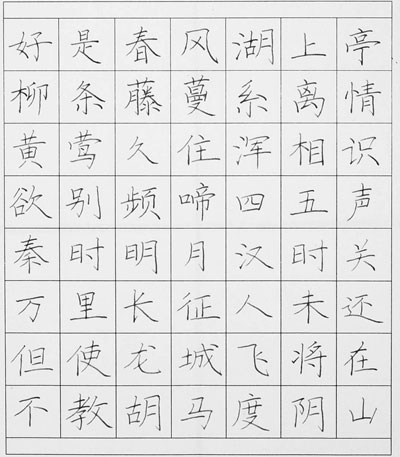 好是春风湖上亭
柳条藤蔓系离情
黄莺久住浑相识
欲别频啼四五声
秦时明月汉时关
万里长征人未还
但使龙城飞将在
不教胡马度阴山